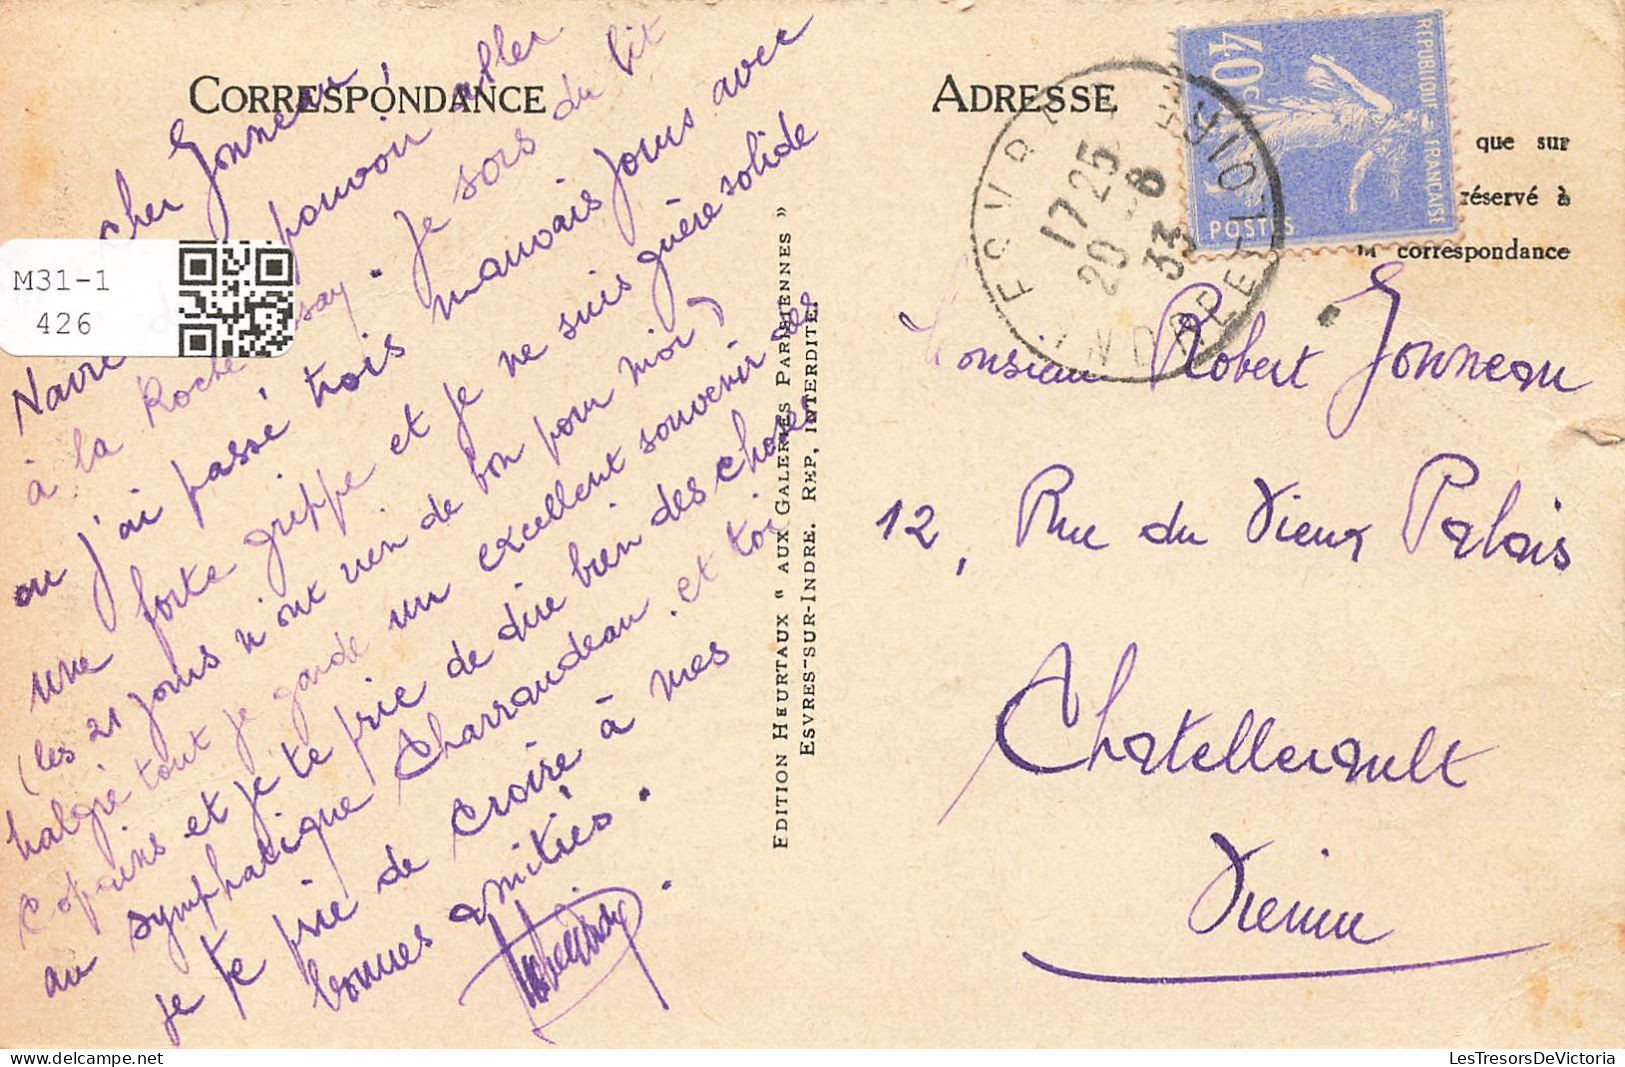 CORRESPONDANCE
cher Gonneau,
Navré pouvoir aller
à la Roche say. Je sors du lit
où j'ai passé trois mauvais jours avec
une forte grippe et je ne suis guère solide
(les 21 jours n'ont rien de bon pour moi)
Malgré tout je garde un excellent souvenir des
Copains et je te prie de dire bien des choses
au symphatique Charraudeau. et toi
je te prie de croire à mes
bonnes amitiés.
EDITION HEURTAUX " AUX GALERIES PARISIENNES "
ESVRES-SUR-INDRE. REP. INTERDITE.
ADRESSE
que sur
réservé à
la correspondance
RÉPUBLIQUE FRANÇAISE
40c
POSTES
ESVRES
17 25
20 -6
33
INDRE-ET-LOIRE
Monsieur Robert Gonneau
12, Rue du Vieux Palais
Chatellerault
Vienne
M31-1
426
www.delcampe.net
LesTresorsDeVictoria